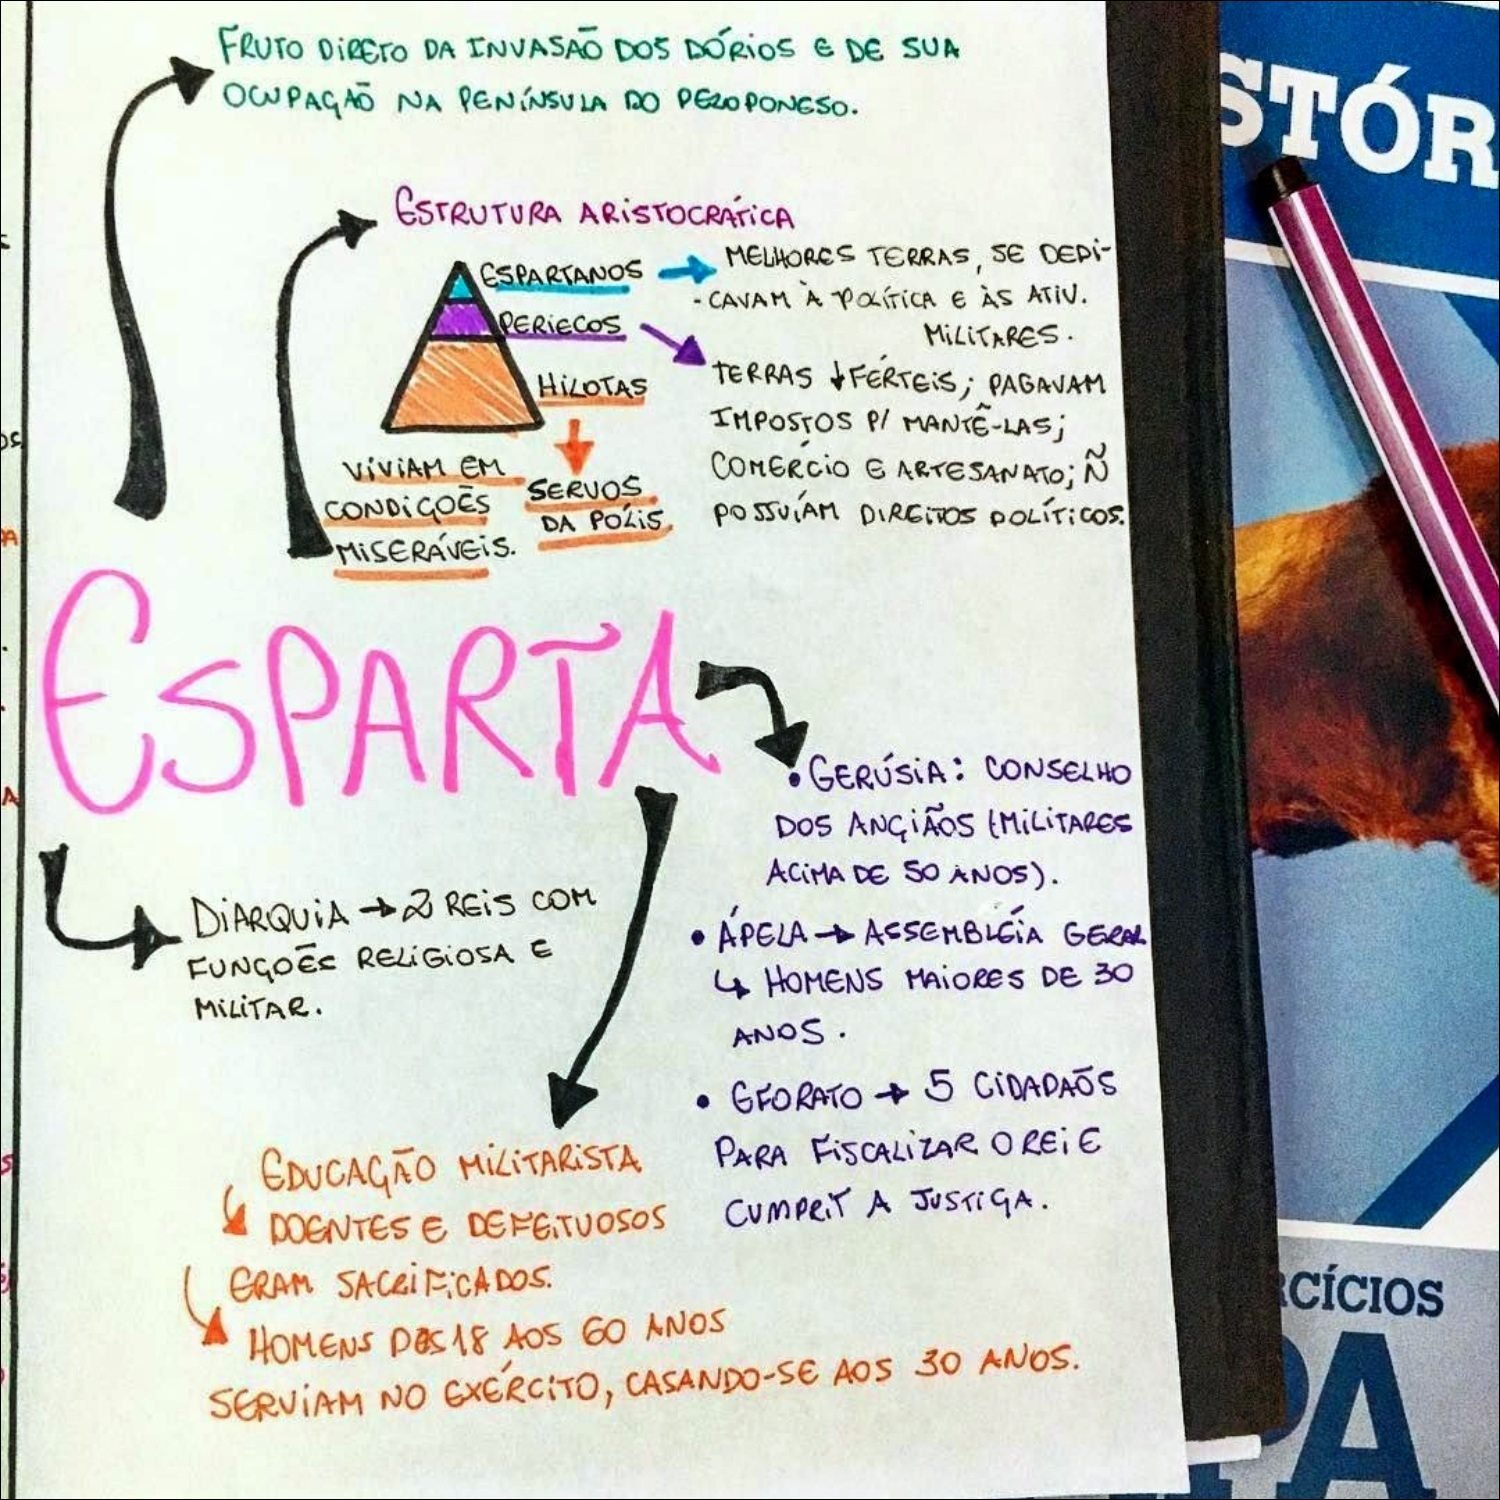 FRUTO DIRETO DA INVASÃO DOS DÓRIOS E DE SUA
OCUPAÇÃO NA PENÍNSULA DO PELOPONESO.
ESTRUTURA ARISTOCRÁTICA
ESPARTANOS → MELHORES TERRAS, SE DEDI-
-CAVAM À POLÍTICA E ÀS ATIV.
MILITARES.
PERIECOS
TERRAS ↓ FÉRTEIS; PAGAVAM
IMPOSTOS P/ MANTÊ-LAS;
COMÉRCIO E ARTESANATO; Ñ
POSSUÍAM DIREITOS POLÍTICOS.
HILOTAS
SERVOS
DA PÓLIS.
VIVIAM EM
CONDIÇÕES
MISERÁVEIS.
ESPARTA
• GERÚSIA: CONSELHO
DOS ANÇIÃOS (MILITARES
ACIMA DE 50 ANOS).
• ÁPELA → ASSEMBLÉIA GERAL
↳ HOMENS MAIORES DE 30
ANOS.
• EFORATO → 5 CIDADÃOS
PARA FISCALIZAR O REI E
CUMPRIR A JUSTIÇA.
DIARQUIA → 2 REIS COM
FUNÇÕES RELIGIOSA E
MILITAR.
EDUCAÇÃO MILITARISTA
DOENTES E DEFEITUOSOS
ERAM SACRIFICADOS.
HOMENS DOS 18 AOS 60 ANOS
SERVIAM NO EXÉRCITO, CASANDO-SE AOS 30 ANOS.
STÓR
RCÍCIOS
PA